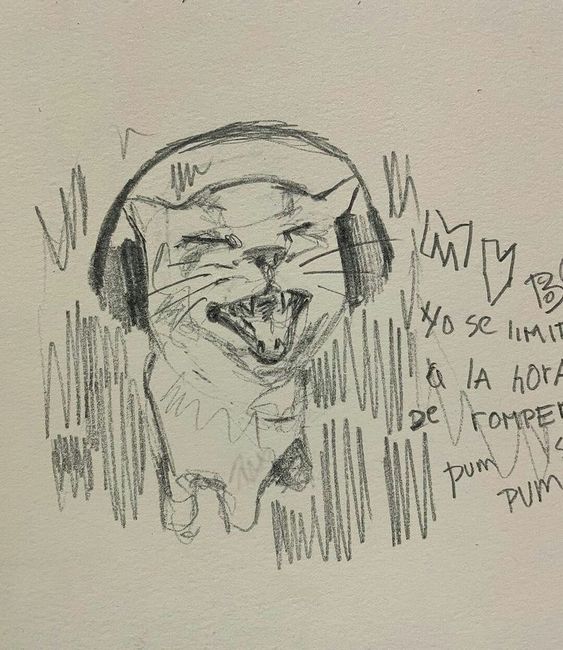 Yo se LIMIT
a LA horA
De romper
pum
PUM